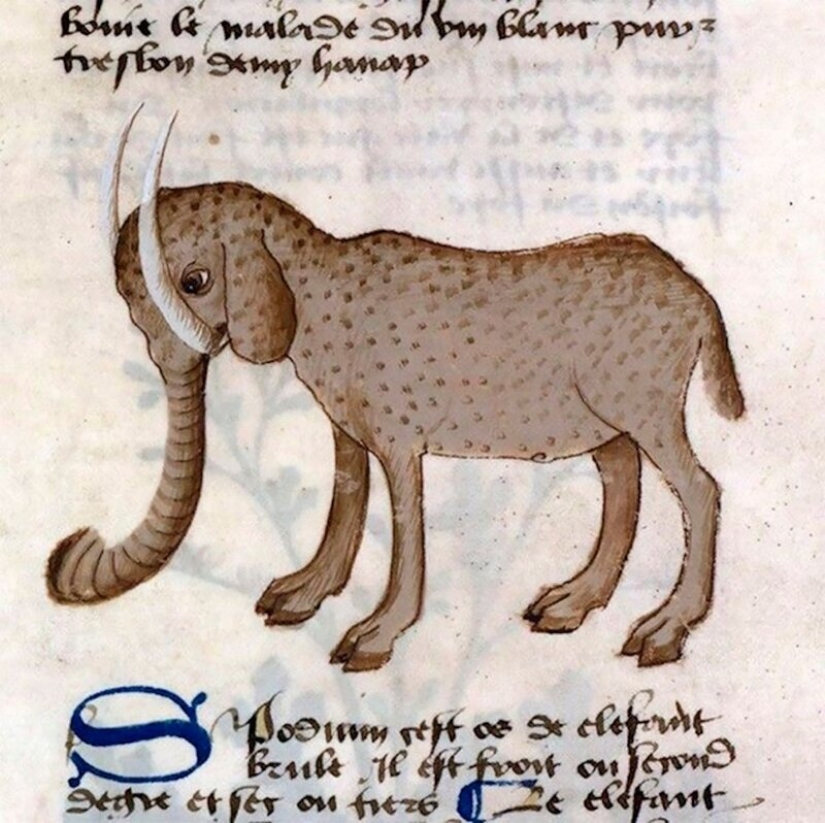 boiue le malade du vin blanc puy-
tresbon demy hanap
Spodium cest os de elefant
brule Il est froit ou second
degre et sec ou tiers Le elefant